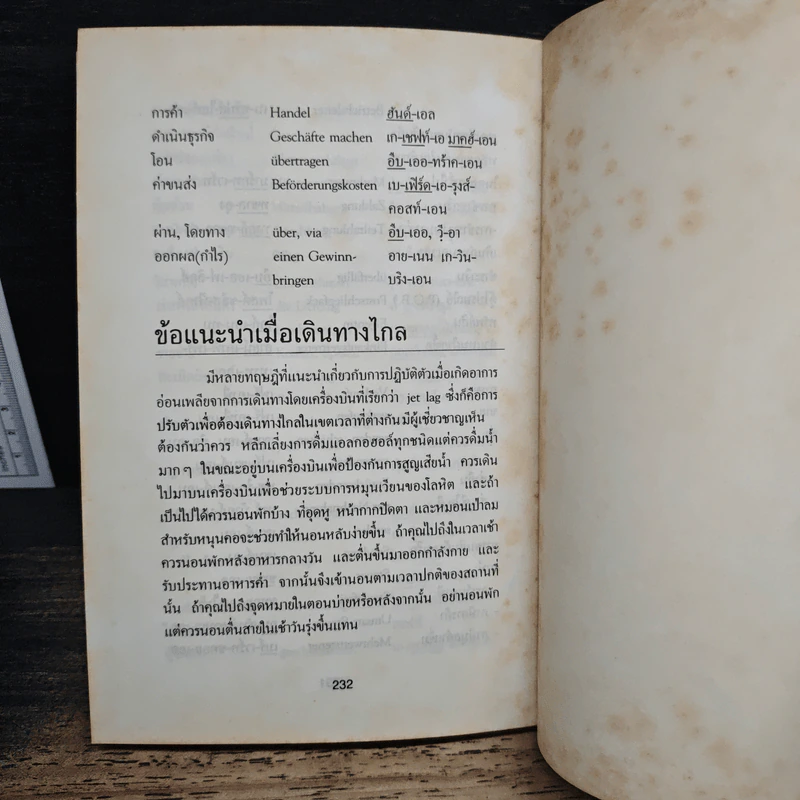 การค้า Handel ฮันด์-เอล
ดำเนินธุรกิจ Geschäfte machen เก-เชฟท์-เอ มาคฮ์-เอน
โอน übertragen อึบ-เออ-ทร้าค-เอน
ค่าขนส่ง Beförderungskosten เบ-เฟิร์ด-เอ-รุงส์-
คอสท์-เอน
ผ่าน, โดยทาง über, via อึบ-เออ, วี-อา
ออกผล(กำไร) einen Gewinn- อาย-เนน เก-วิน-
bringen บริง-เอน
ข้อแนะนำเมื่อเดินทางไกล
มีหลายทฤษฎีที่แนะนำเกี่ยวกับการปฏิบัติตัวเมื่อเกิดอาการ
อ่อนเพลียจากการเดินทางโดยเครื่องบินที่เรียกว่า jet lag ซึ่งก็คือการ
ปรับตัวเพื่อต้องเดินทางไกลในเขตเวลาที่ต่างกัน มีผู้เชี่ยวชาญเห็น
ต้องกันว่าควร หลีกเลี่ยงการดื่มแอลกอฮอล์ทุกชนิดแต่ควรดื่มน้ำ
มาก ๆ ในขณะอยู่บนเครื่องบินเพื่อป้องกันการสูญเสียน้ำ ควรเดิน
ไปมาบนเครื่องบินเพื่อช่วยระบบการหมุนเวียนของโลหิต และถ้า
เป็นไปได้ควรนอนพักบ้าง ที่อุดหู หน้ากากปิดตา และหมอนเป่าลม
สำหรับหนุนคอจะช่วยทำให้นอนหลับง่ายขึ้น ถ้าคุณไปถึงในเวลาเช้า
ควรนอนพักหลังอาหารกลางวัน และตื่นขึ้นมาออกกำลังกาย และ
รับประทานอาหารค่ำ จากนั้นจึงเข้านอนตามเวลาปกติของสถานที่
นั้น ถ้าคุณไปถึงจุดหมายในตอนบ่ายหรือหลังจากนั้น อย่านอนพัก
แต่ควรนอนตื่นสายในเช้าวันรุ่งขึ้นแทน
232